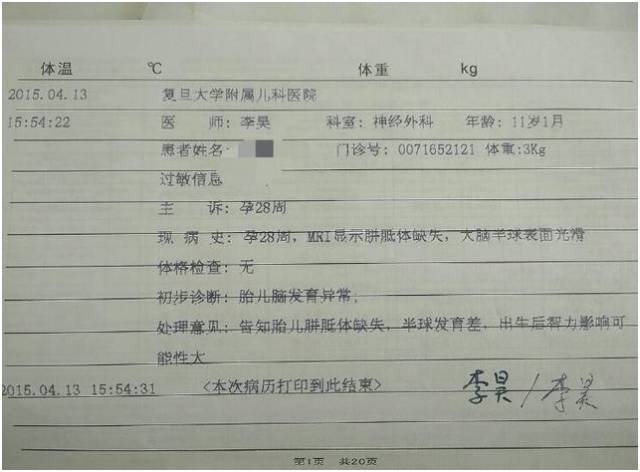 体温 ℃ 体重 kg
2015.04.13 复旦大学附属儿科医院
15:54:22 医 师: 李昊 科室: 神经外科 年龄: 11岁1月
患者姓名: 门诊号: 0071652121 体重:3Kg
过敏信息
主 诉: 孕28周
现 病 史: 孕28周, MRI显示胼胝体缺失, 大脑半球表面光滑
体格检查: 无
初步诊断: 胎儿脑发育异常;
处理意见: 告知胎儿胼胝体缺失, 半球发育差, 出生后智力影响可
能性大
2015.04.13 15:54:31 <本次病历打印到此结束> 李昊/李昊
第1页 共20页